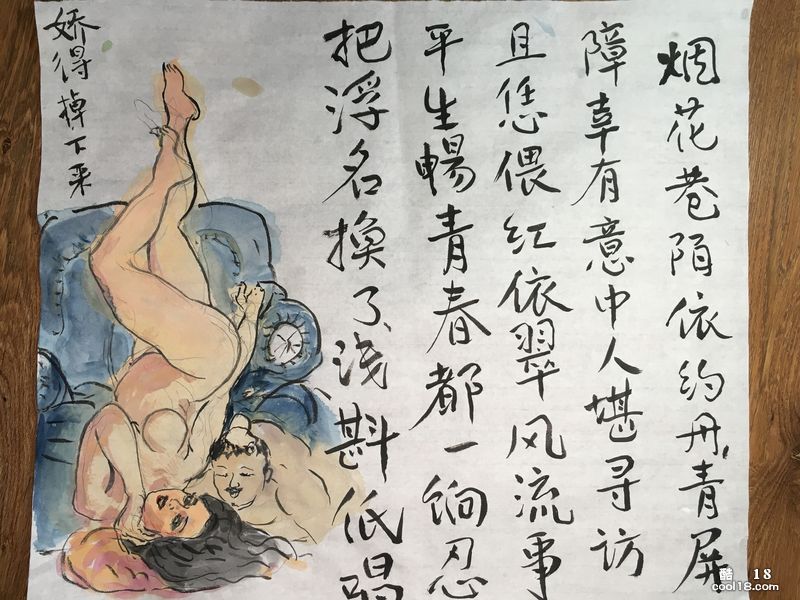 烟花巷陌依约丹青屏
障幸有意中人堪寻访
且恁偎红依翠风流事
平生暢青春都一饷忍
把浮名換了浅斟低唱
娇得掉下来
酷 18
cool18.com